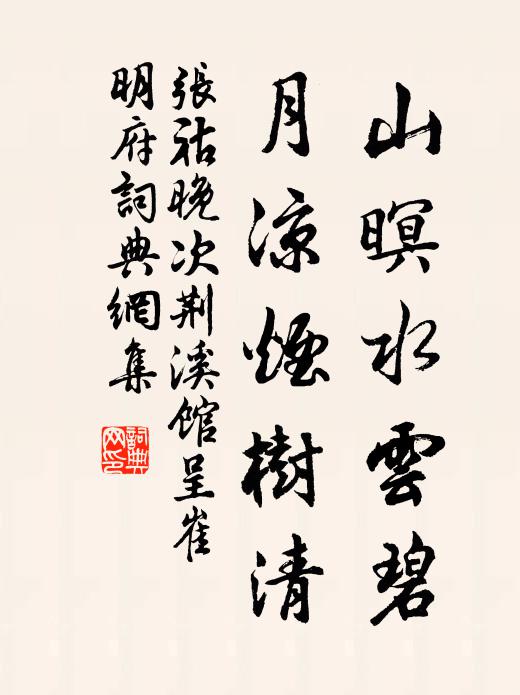 山暝水雲碧
月涼煙樹清
張祜晚次荆溪館呈崔
明府詞典網集
詞典
网印